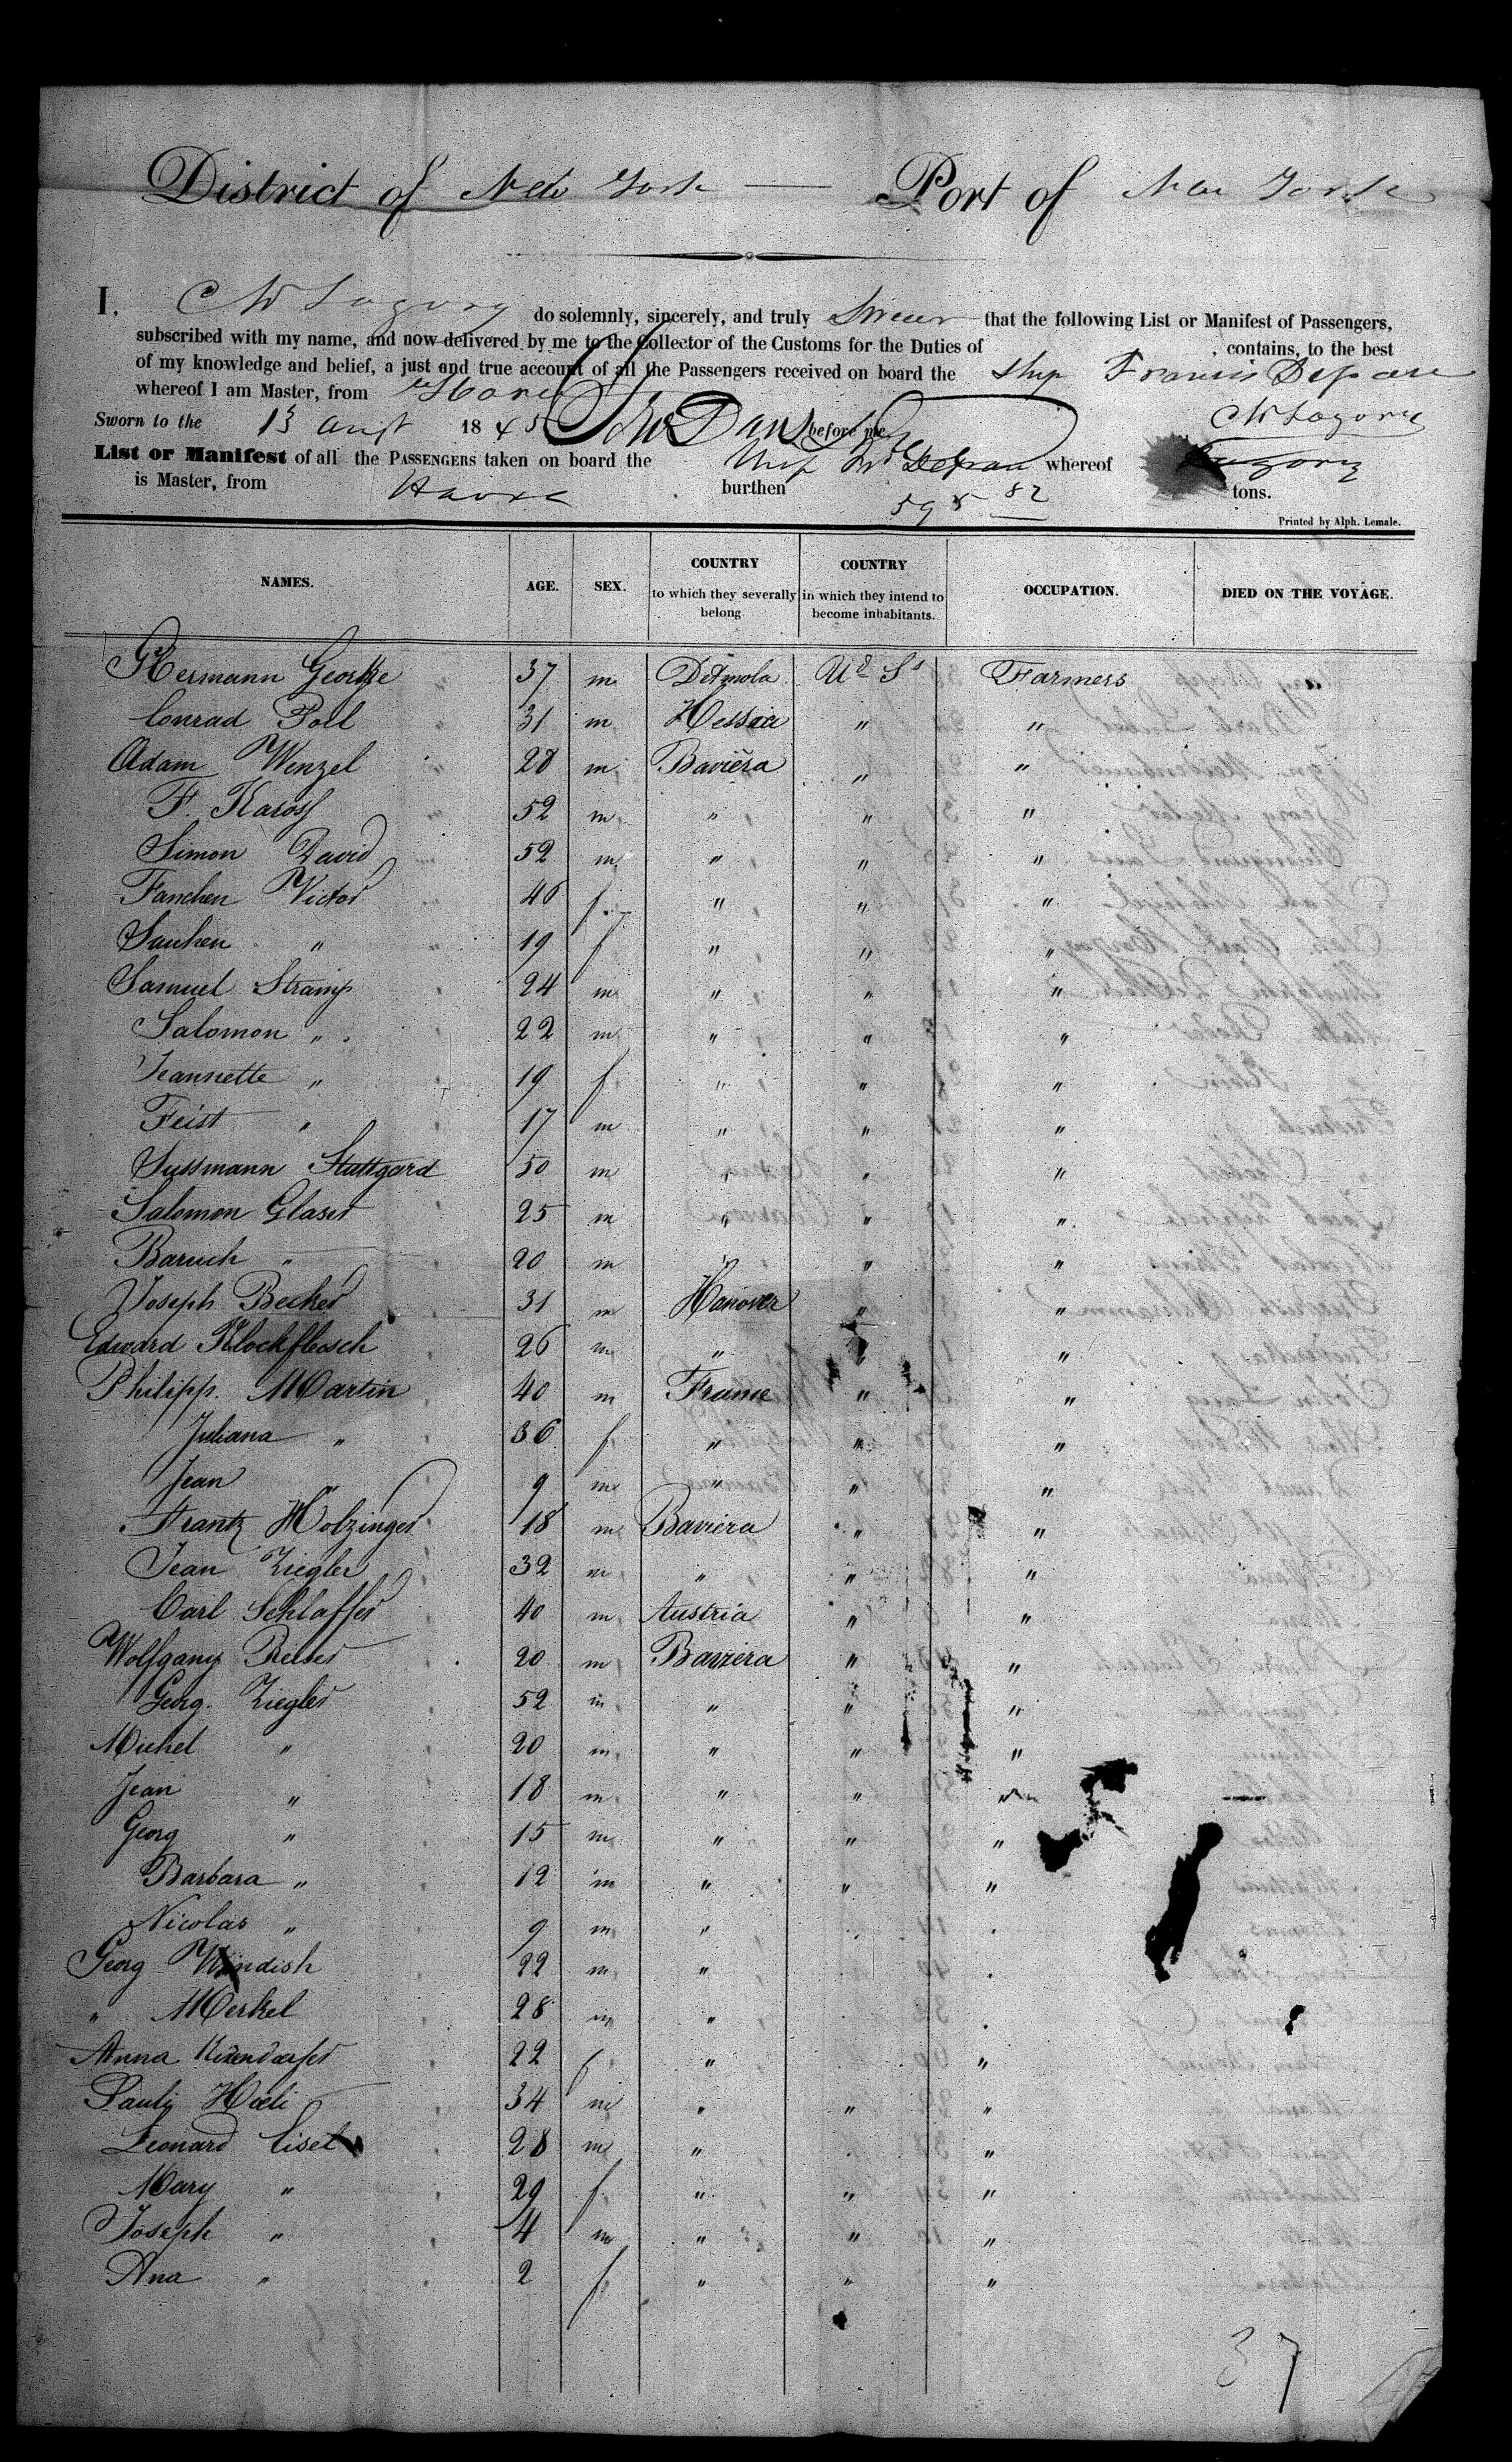 District of New York — Port of New York
I, do solemnly, sincerely, and truly Swear that the following List or Manifest of Passengers,
subscribed with my name, and now delivered by me to the Collector of the Customs for the Duties of , contains, to the best
of my knowledge and belief, a just and true account of all the Passengers received on board the Ship Francis Depau
whereof I am Master, from Havre
Sworn to the 13 1845 before me
List or Manifest of all the PASSENGERS taken on board the Ship Fr Depau whereof
is Master, from Havre burthen 595 82 tons.
Printed by Alph. Lemale.
NAMES. AGE. SEX. COUNTRY to which they severally belong COUNTRY in which they intend to become inhabitants. OCCUPATION. DIED ON THE VOYAGE.
Hermann Georke 37 m Detmola Ud Ss Farmers
Conrad 31 m Hessia " "
Adam Wenzel 28 m Baviera " "
F. 52 m " " "
Simon David 52 m " " "
Fanchen Victor 46 f " " "
" 19 f " " "
Samuel 24 m " " "
Salomon " 22 m " " "
Jeannette " 19 f " " "
Feist " 17 m " " "
Sussmann Stuttgard 50 m " " "
Salomon Glaser 25 m " " "
Baruch " 20 m " " "
Joseph Becker 31 m Hanover " "
Edward 26 m " " "
Philipp. Martin 40 m France " "
Juliana " 36 f " " "
Jean " 9 m " " "
Frantz Holzinger 18 m Baviera " "
Jean Ziegler 32 m " " "
Carl Schlaffer 40 m Austria " "
Wolfgang 20 m Baviera " "
Georg. Ziegler 52 m " " "
Michel " 20 m " " "
Jean " 18 m " " "
Georg " 15 m " " "
Barbara " 12 m " " "
Nicolas " 9 m "
Georg Windish 22 m "
" Merkel 28 m "
Anna 22 f " "
Pauli 34 m " " "
Leonard Eisel 28 m " "
Mary " 29 f " " "
Joseph " 4 m " " "
Ana " 2 f " " "
37